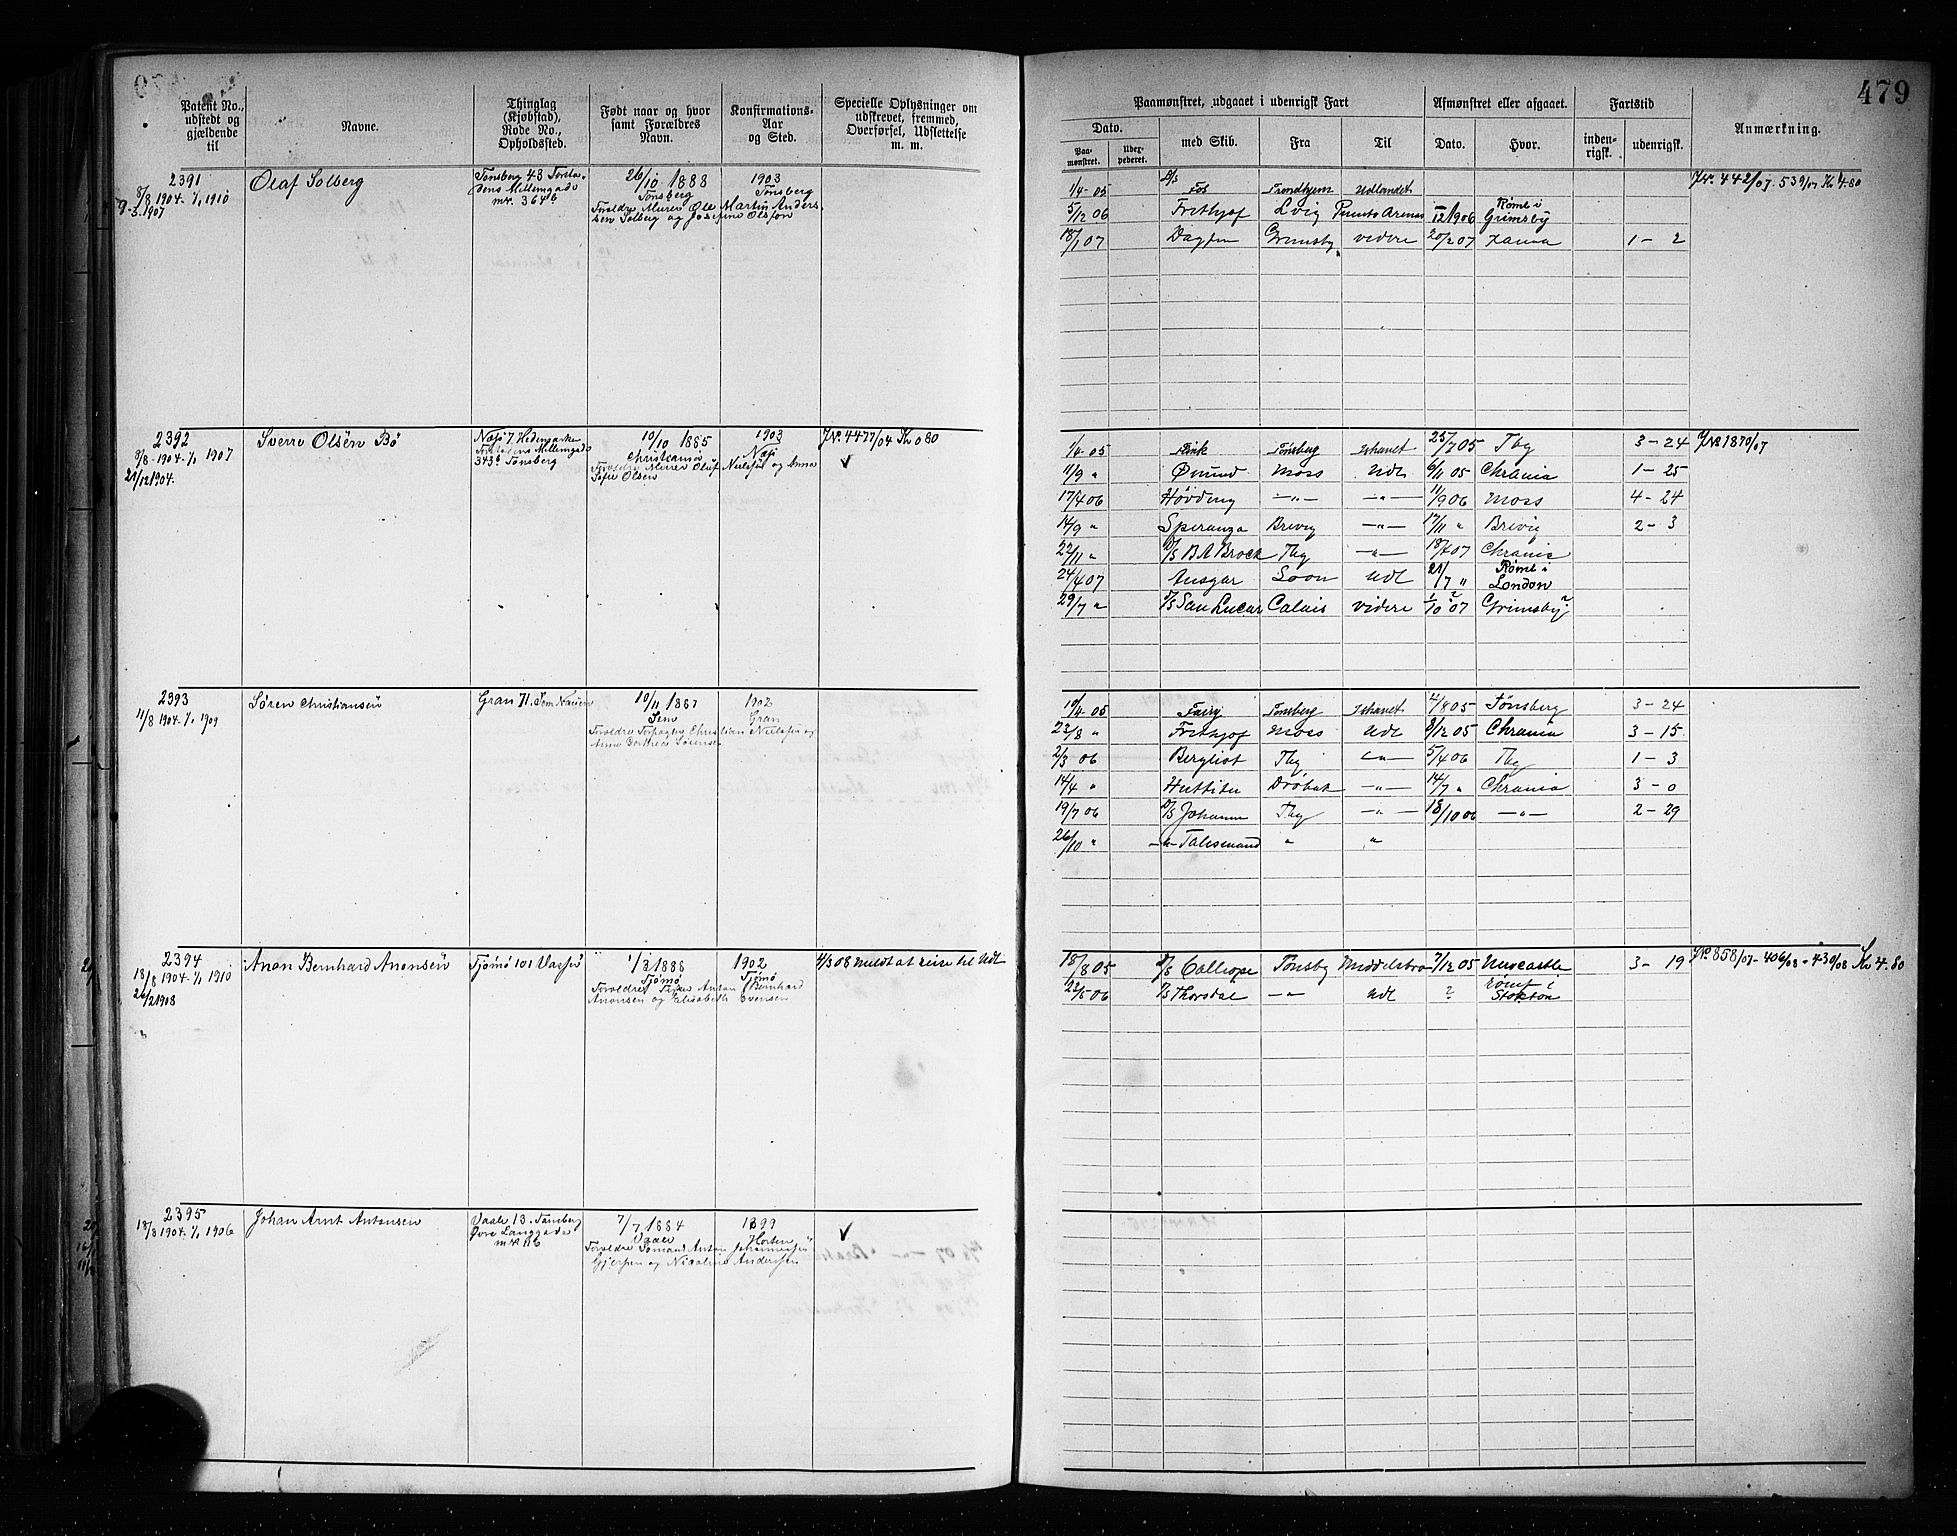 479
Patent No., udstedt og gjældende til
Navne.
Thinglag (Kjøbstad), Rode No., Opholdsted.
Født naar og hvor samt Forældres Navn.
Konfirmations-Aar og Sted.
Specielle Oplysninger om udskrevet, fremmed, Overførsel, Udslettelse m. m.
Paamønstret, udgaaet i udenrigsk Fart
Afmønstret eller afgaaet.
Fartstid
Anmærkning.
Dato.
med Skib.
Fra
Til
Dato.
Hvor.
inden-rigsk.
udenrigsk.
Paa-mønstret.
2391
8/8 1904 - 1/1 1910
9-3.1907
Olaf Solberg
Tønsberg 48
Mellemgade
nr. 364 b
26/10 1888
Tønsberg
Forældre Murer Ole Martin Anders-
sen Solberg og Josefine Olsson
1903
Tønsberg
1/4-05 D/S Fos Trondhjem Udlandet
5/12 06 Frithjof Lvig Punto Arenas 12/1906 Rømt i Grimsby
18/1 07 Grimsby videre 20/2 07 1 - 2
J.Nr. 442/07. 539/07 Kr 4.80
2392
8/8 - 1904 - 1/1 1907
21/12 1904.
Sverre Olsen Bø
Næs 7 Hedemarken
Mellemgade
343 Tønsberg
10/10 1885
Christiania
Forældre Murer Oluf Nielsen og Anna
Sofie Olsen
1903
Næs
J.Nr. 4477/04 Kr 0 80
✓
1/4-05 Fink Tønsberg Ishavet 25/7 05 Tbg 3 - 24
J.No 1870/07
11/9 " Ømund Moss Udl 6/11 05 Chrania 1 - 25
17/4 06 Høvding —"— —"— 11/9 06 Moss 4 - 24
14/9 " Speranza Brevig —"— 17/11 " Brevig 2 - 3
22/11 " D/S B A Brock Tbg —"— 18/4 07 Chrania
24/4 07 Ansgar Udl 21/7 " Rømt i London
29/7 " D/S San Lucar Calais videre 1/10 ? 07 Grimsby ?
2393
11/8 1904 - 1/1 1909
Søren Christiansen
Gran 71. Sem
10/11 1887
Sem
Forældre Christian Nielsen og
Anne Sørensen
1902
Gran
10/4-05 Fairy Tønsberg Ishavet 4/8 05 Tønsberg 3 - 24
23/8 " Frithjof Moss Udl 8/12 05 Chrania 3 - 15
2/3 06 Bergliot Tbg —"— 5/4 06 Tbg 1 - 3
14/4 " Drøbak —"— 14/7 " Chrania 3 - 0
19/7 06 D/S Johanne Tbg —"— 18/10 06 —"— 2 - 29
26/10 " —"— Talismand " "
2394
18/8 1904 - 1/1 1910
26/2 1908
Anon Bernhard Anonsen
Tjømø 101
1/3 1888
Tjømø
Forældre Fisker Anton Bernhard
Anonsen og Elisabeth Svensen
1902
Tjømø
4/3 08 meldt at reise til Udl
18/8 05 D/S Calliope Tønsby Middelsbro 7/12 05 Newcastle 3 - 19
J.No 858/07 - 406/08 - 430/08 Kr 4.80
23/5 06 D/S Thorsdal —"— Udl ? rømt i Stokton
2395
18/8 1904 - 1/1 1906
Johan Arnt Antonsen
Vaale 13. Tønsberg
Øvre Langgade
nr. 116
7/7 1884
Vaale
Forældre Sømand Anton Johannessen
Gjerpen og Nicoline Andersen
1899
Horten
✓